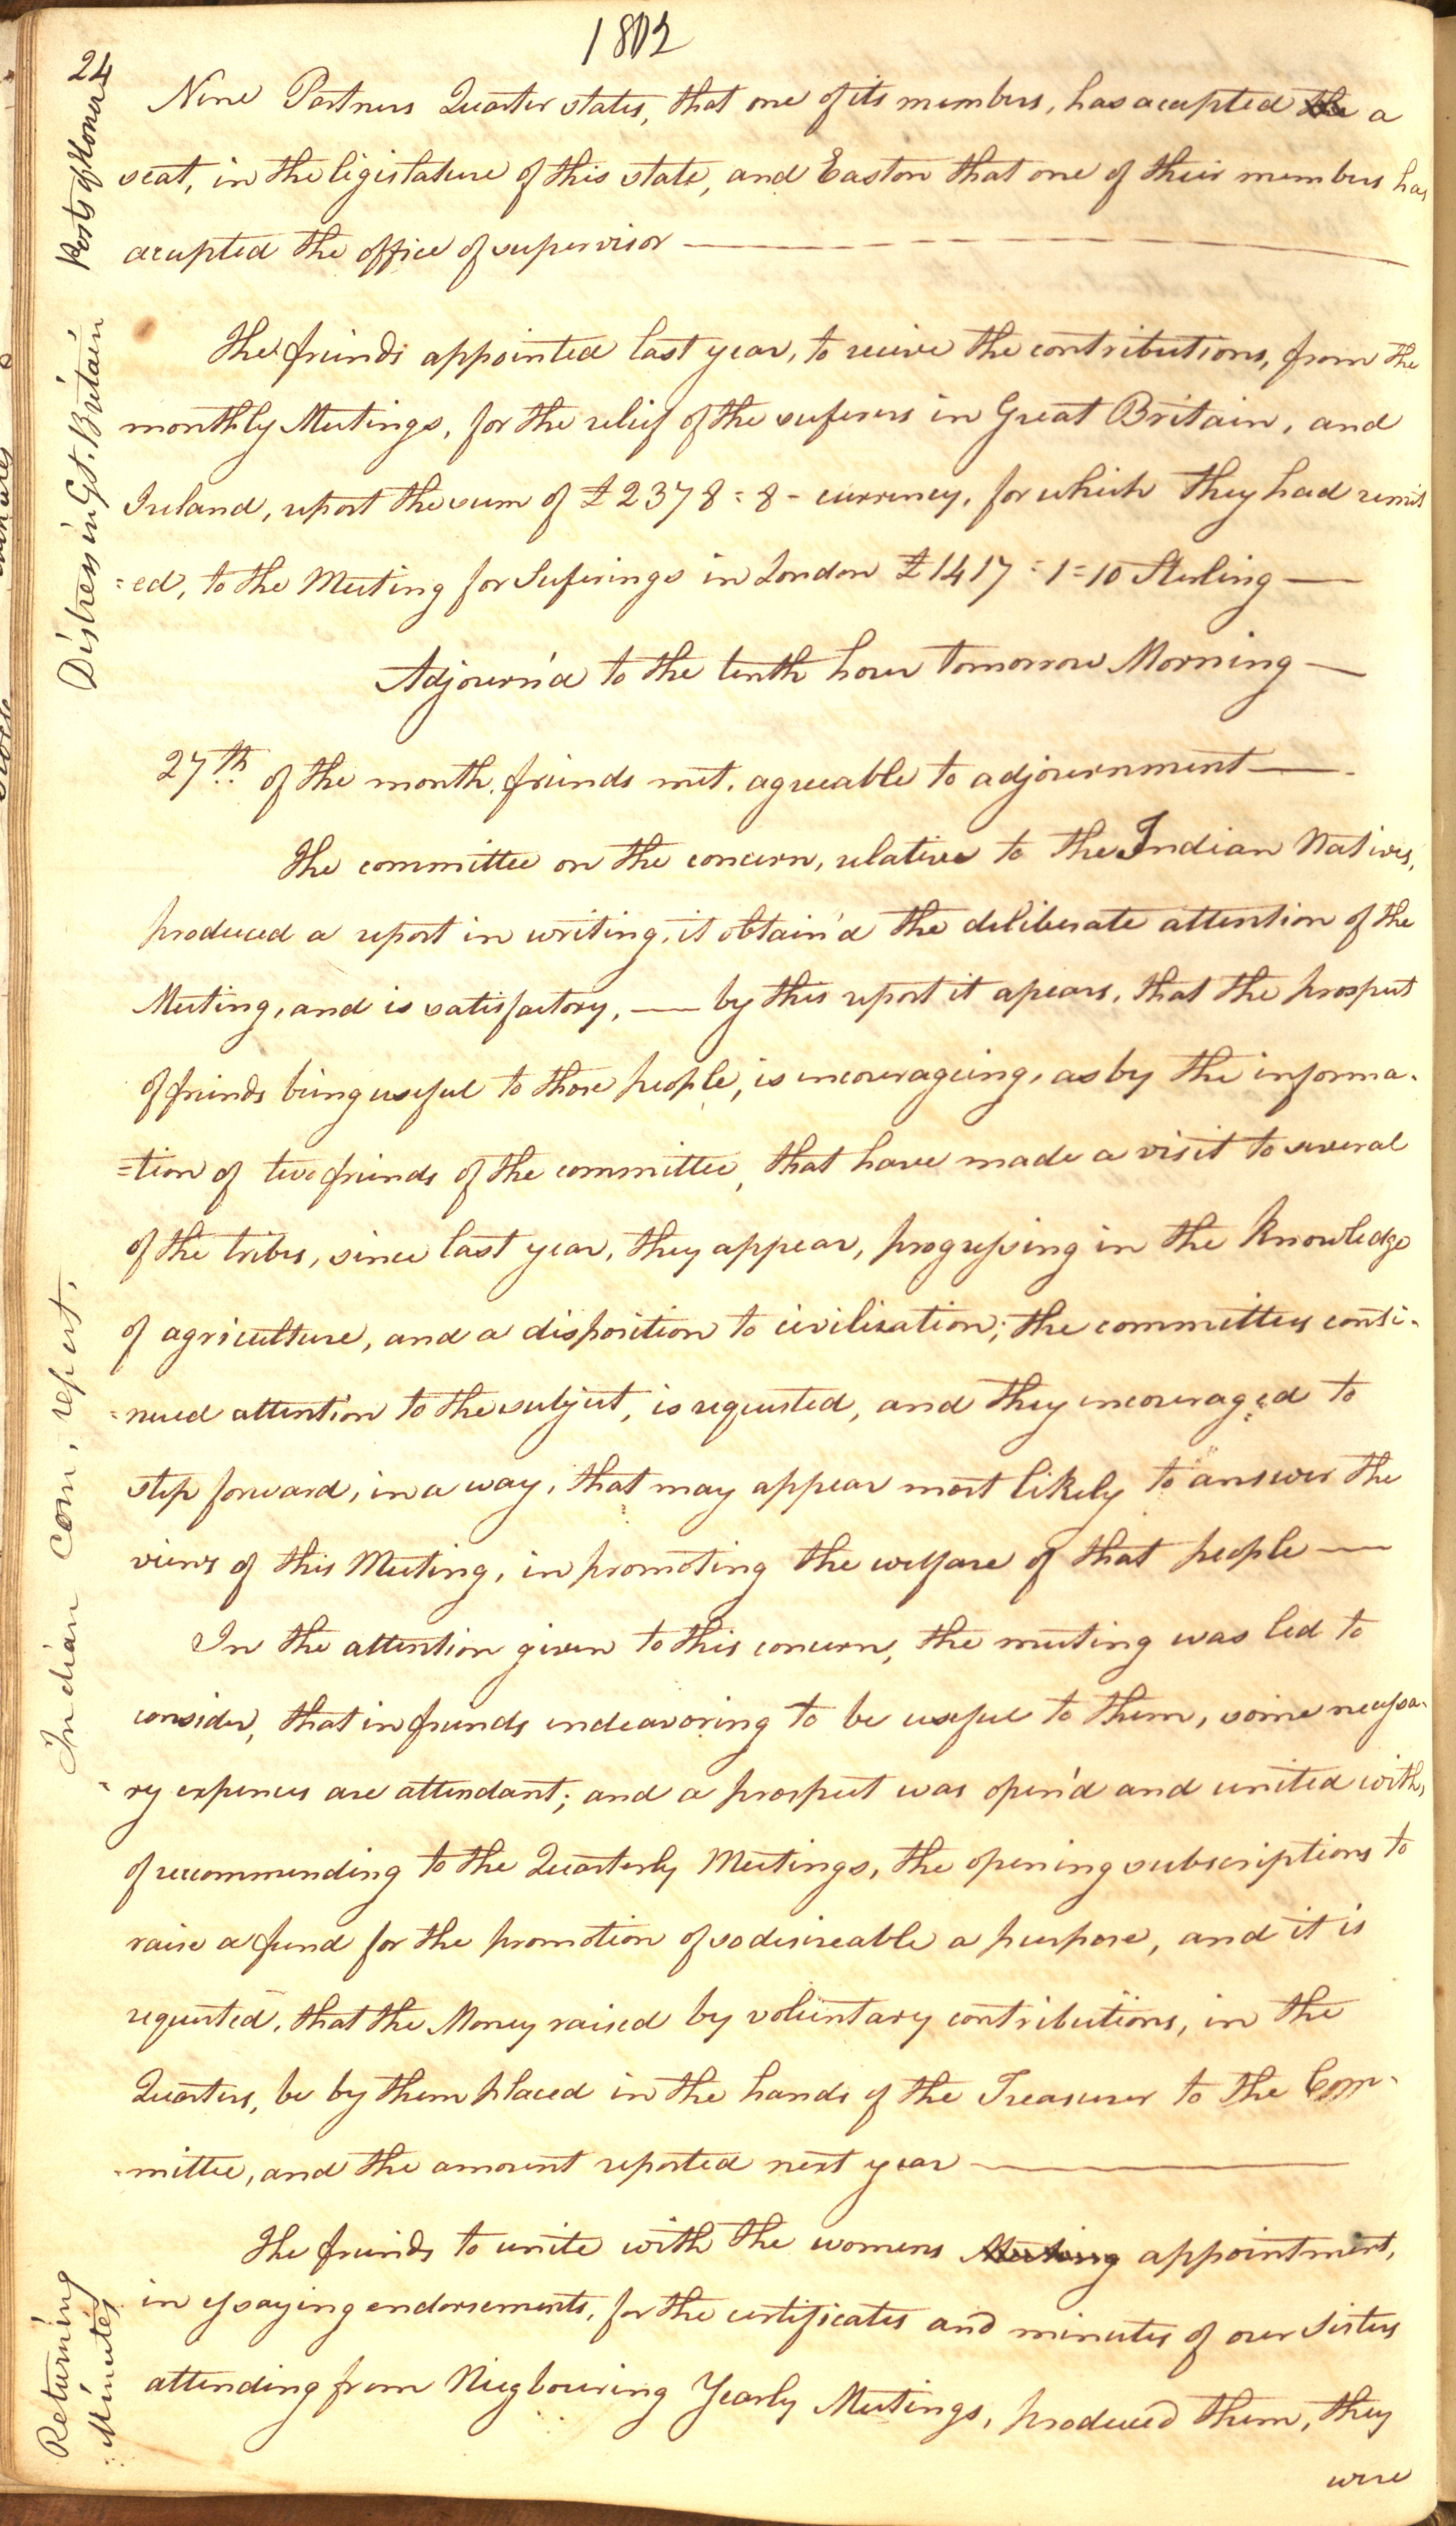 1802
24
Posts of Honor
Nine Partners Quarter states, that one of its members, has accepted the a
seat, in the ligislature of this state, and Easton that one of their members has
accepted the office of supervisor
Distress in Gt. Britain
The friends appointed last year, to receive the contributions, from the
monthly Meetings, for the relief of the suferers in Great Britain, and
Ireland, report the sum of £2378=8- currency, for which they had remit
=ed, to the Meeting for Suferings in London £1417=1=10 Sterling —
Adjourn'd to the tenth hour tomorrow Morning —
27th of the month, friends met, agreeable to adjournment —.
Indian Com, report.
The committee on the concern, relative to the Indian Natives,
produced a report in writing, it obtain'd the deliberate attention of the
Meeting, and is satisfactory, — by this report it apears, that the prospect
of friends being useful to those people, is incourageing, as by the informa-
=tion of two friends of the committee, that have made a visit to several
of the tribes, since last year, they appear, progressing in the knowledge
of agriculture, and a disposition to civilization; the committees conti-
=nued attention to the subject, is requested, and they incouraged to
step forward, in a way, that may appear most likely to answer the
views of this Meeting, in promoting the welfare of that people —
In the attention given to this concern, the meeting was led to
consider, that in friends indeavoring to be useful to them, some necessa-
-ry expences are attendant; and a prospect was open'd and united with,
of recommending to the Quarterly Meetings, the opening subscriptions to
raise a fund for the promotion of so desireable a purpose, and it is
requested, that the Money raised by voluntary contributions, in the
Quarters, be by them placed in the hands of the Treasurer to the Com-
-mittee, and the amount reported next year —
Returning
Minutes
The friends to unite with the womens Meeting appointment,
in essaying endorsements, for the certificates and minutes of our Sisters
attending from Niegbouring Yearly Meetings, produced them, they
were